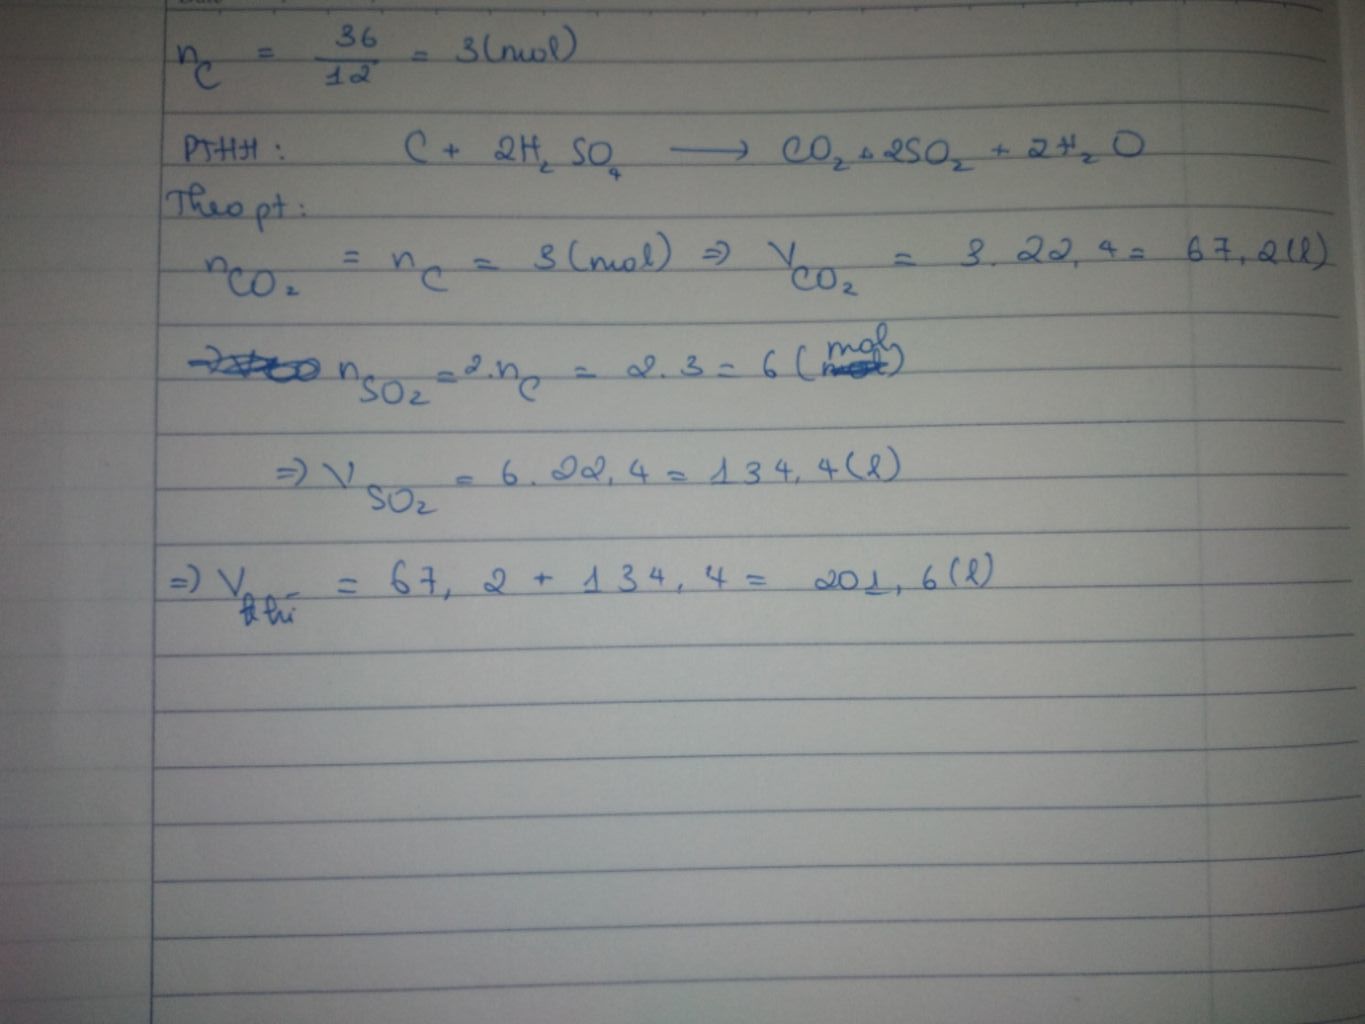 n_C = 36/12 = 3(mol)
PTHH: C + 2H₂SO₄ → CO₂ + 2SO₂ + 2H₂O
Theo pt:
n_CO₂ = n_C = 3(mol) ⇒ V_CO₂ = 3.22,4 = 67,2(l)
n_SO₂ = 2.n_C = 2.3 = 6(mol)
⇒ V_SO₂ = 6.22,4 = 134,4(l)
⇒ V_khí = 67,2 + 134,4 = 201,6(l)